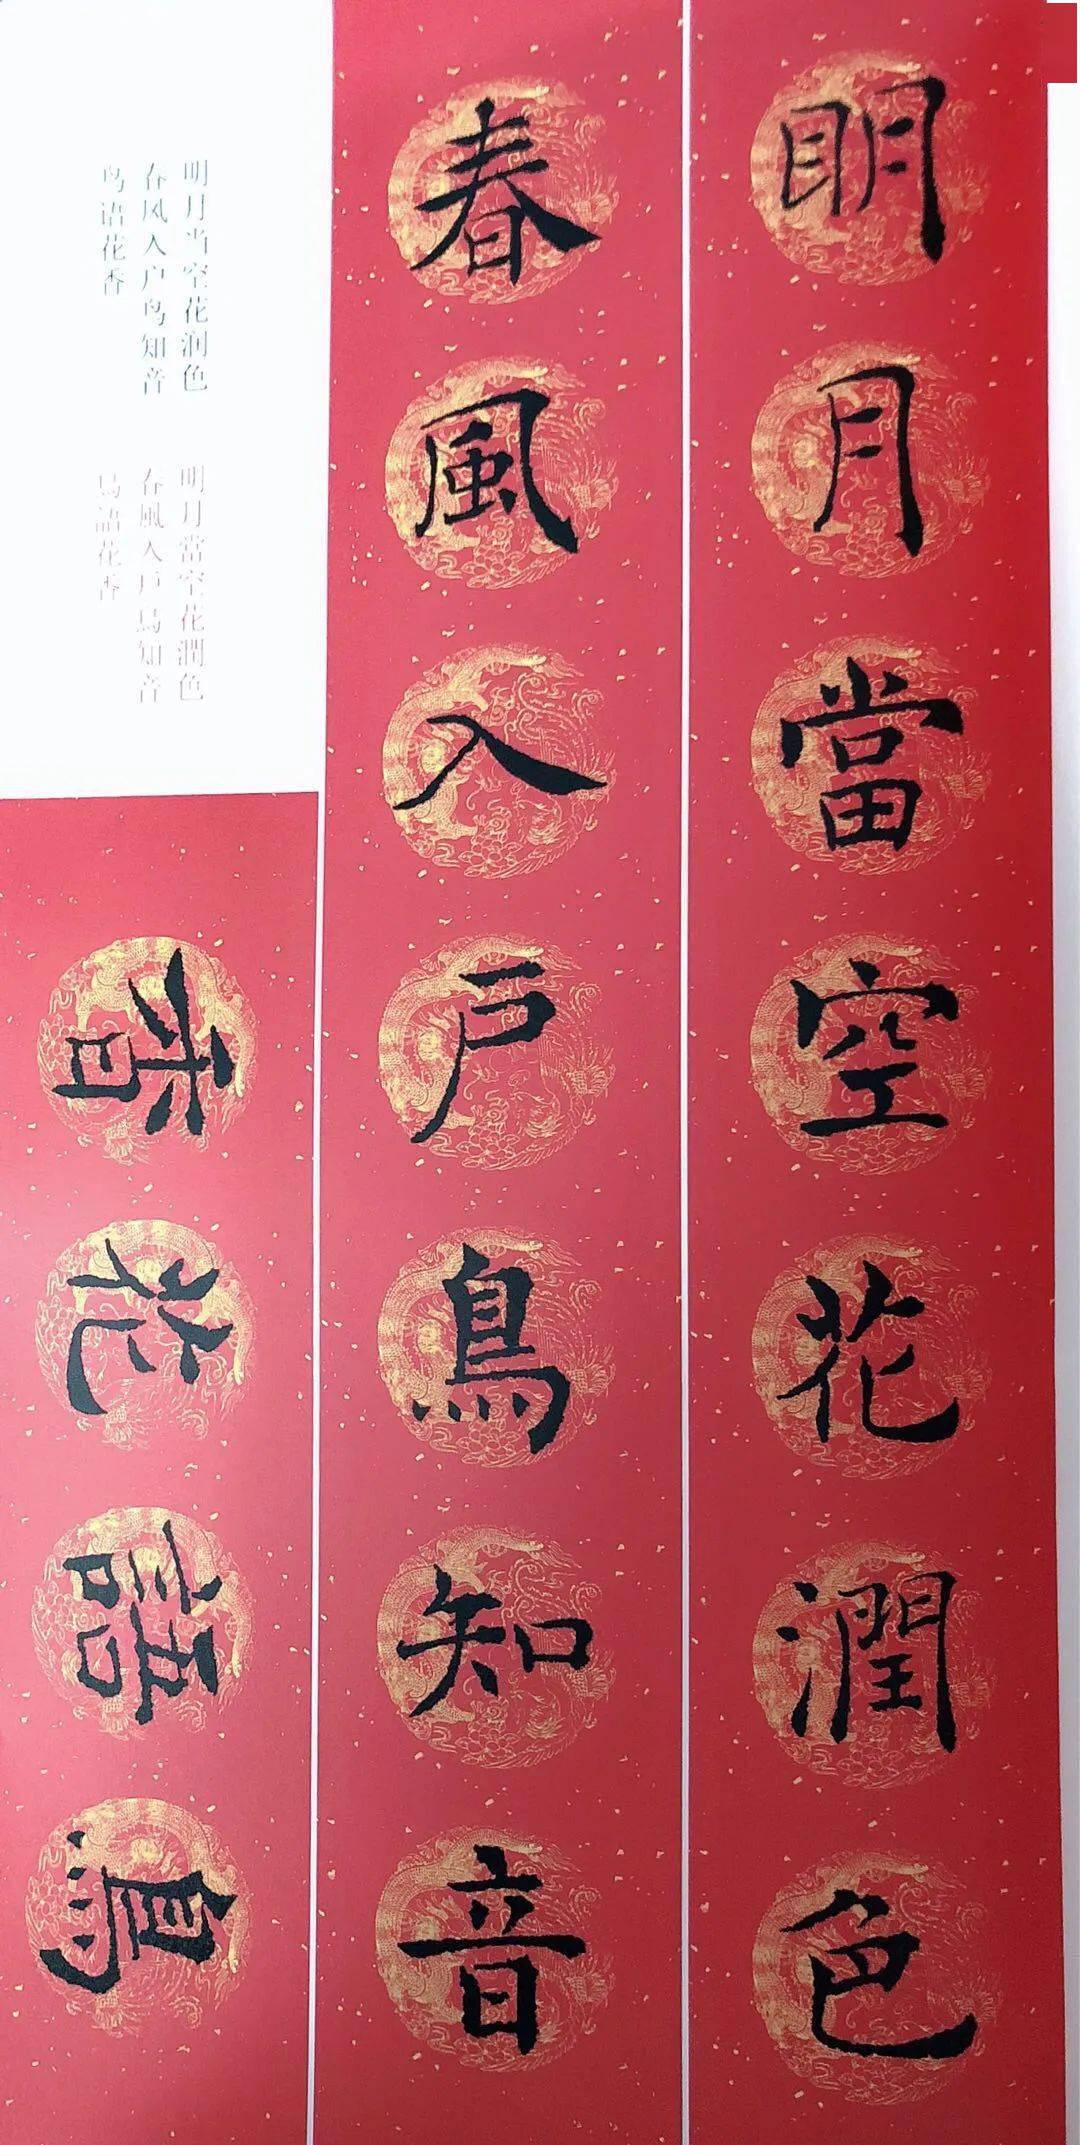 明月當空花潤色
春風入戶鳥知音
鳥語花香
明月当空花润色
春风入户鸟知音
鸟语花香
明月當空花潤色
春風入戶鳥知音
鳥語花香